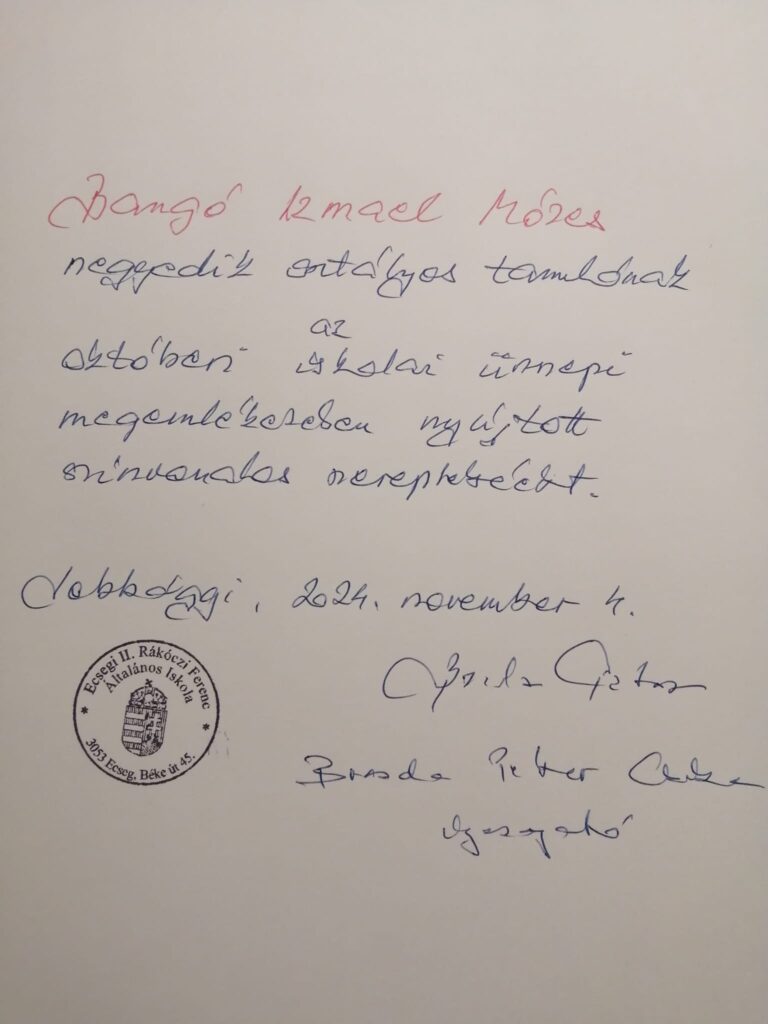 Bangó Izmael Mózes
negyedik osztályos tanulónak
az
októberi iskolai ünnepi
megemlékezésen nyújtott
színvonalas szerepléséért.
Jobbágyi, 2024. november 4.
Ecsegi II. Rákóczi Ferenc
Általános Iskola
3053 Ecseg, Béke út 45.
Péter
igazgató